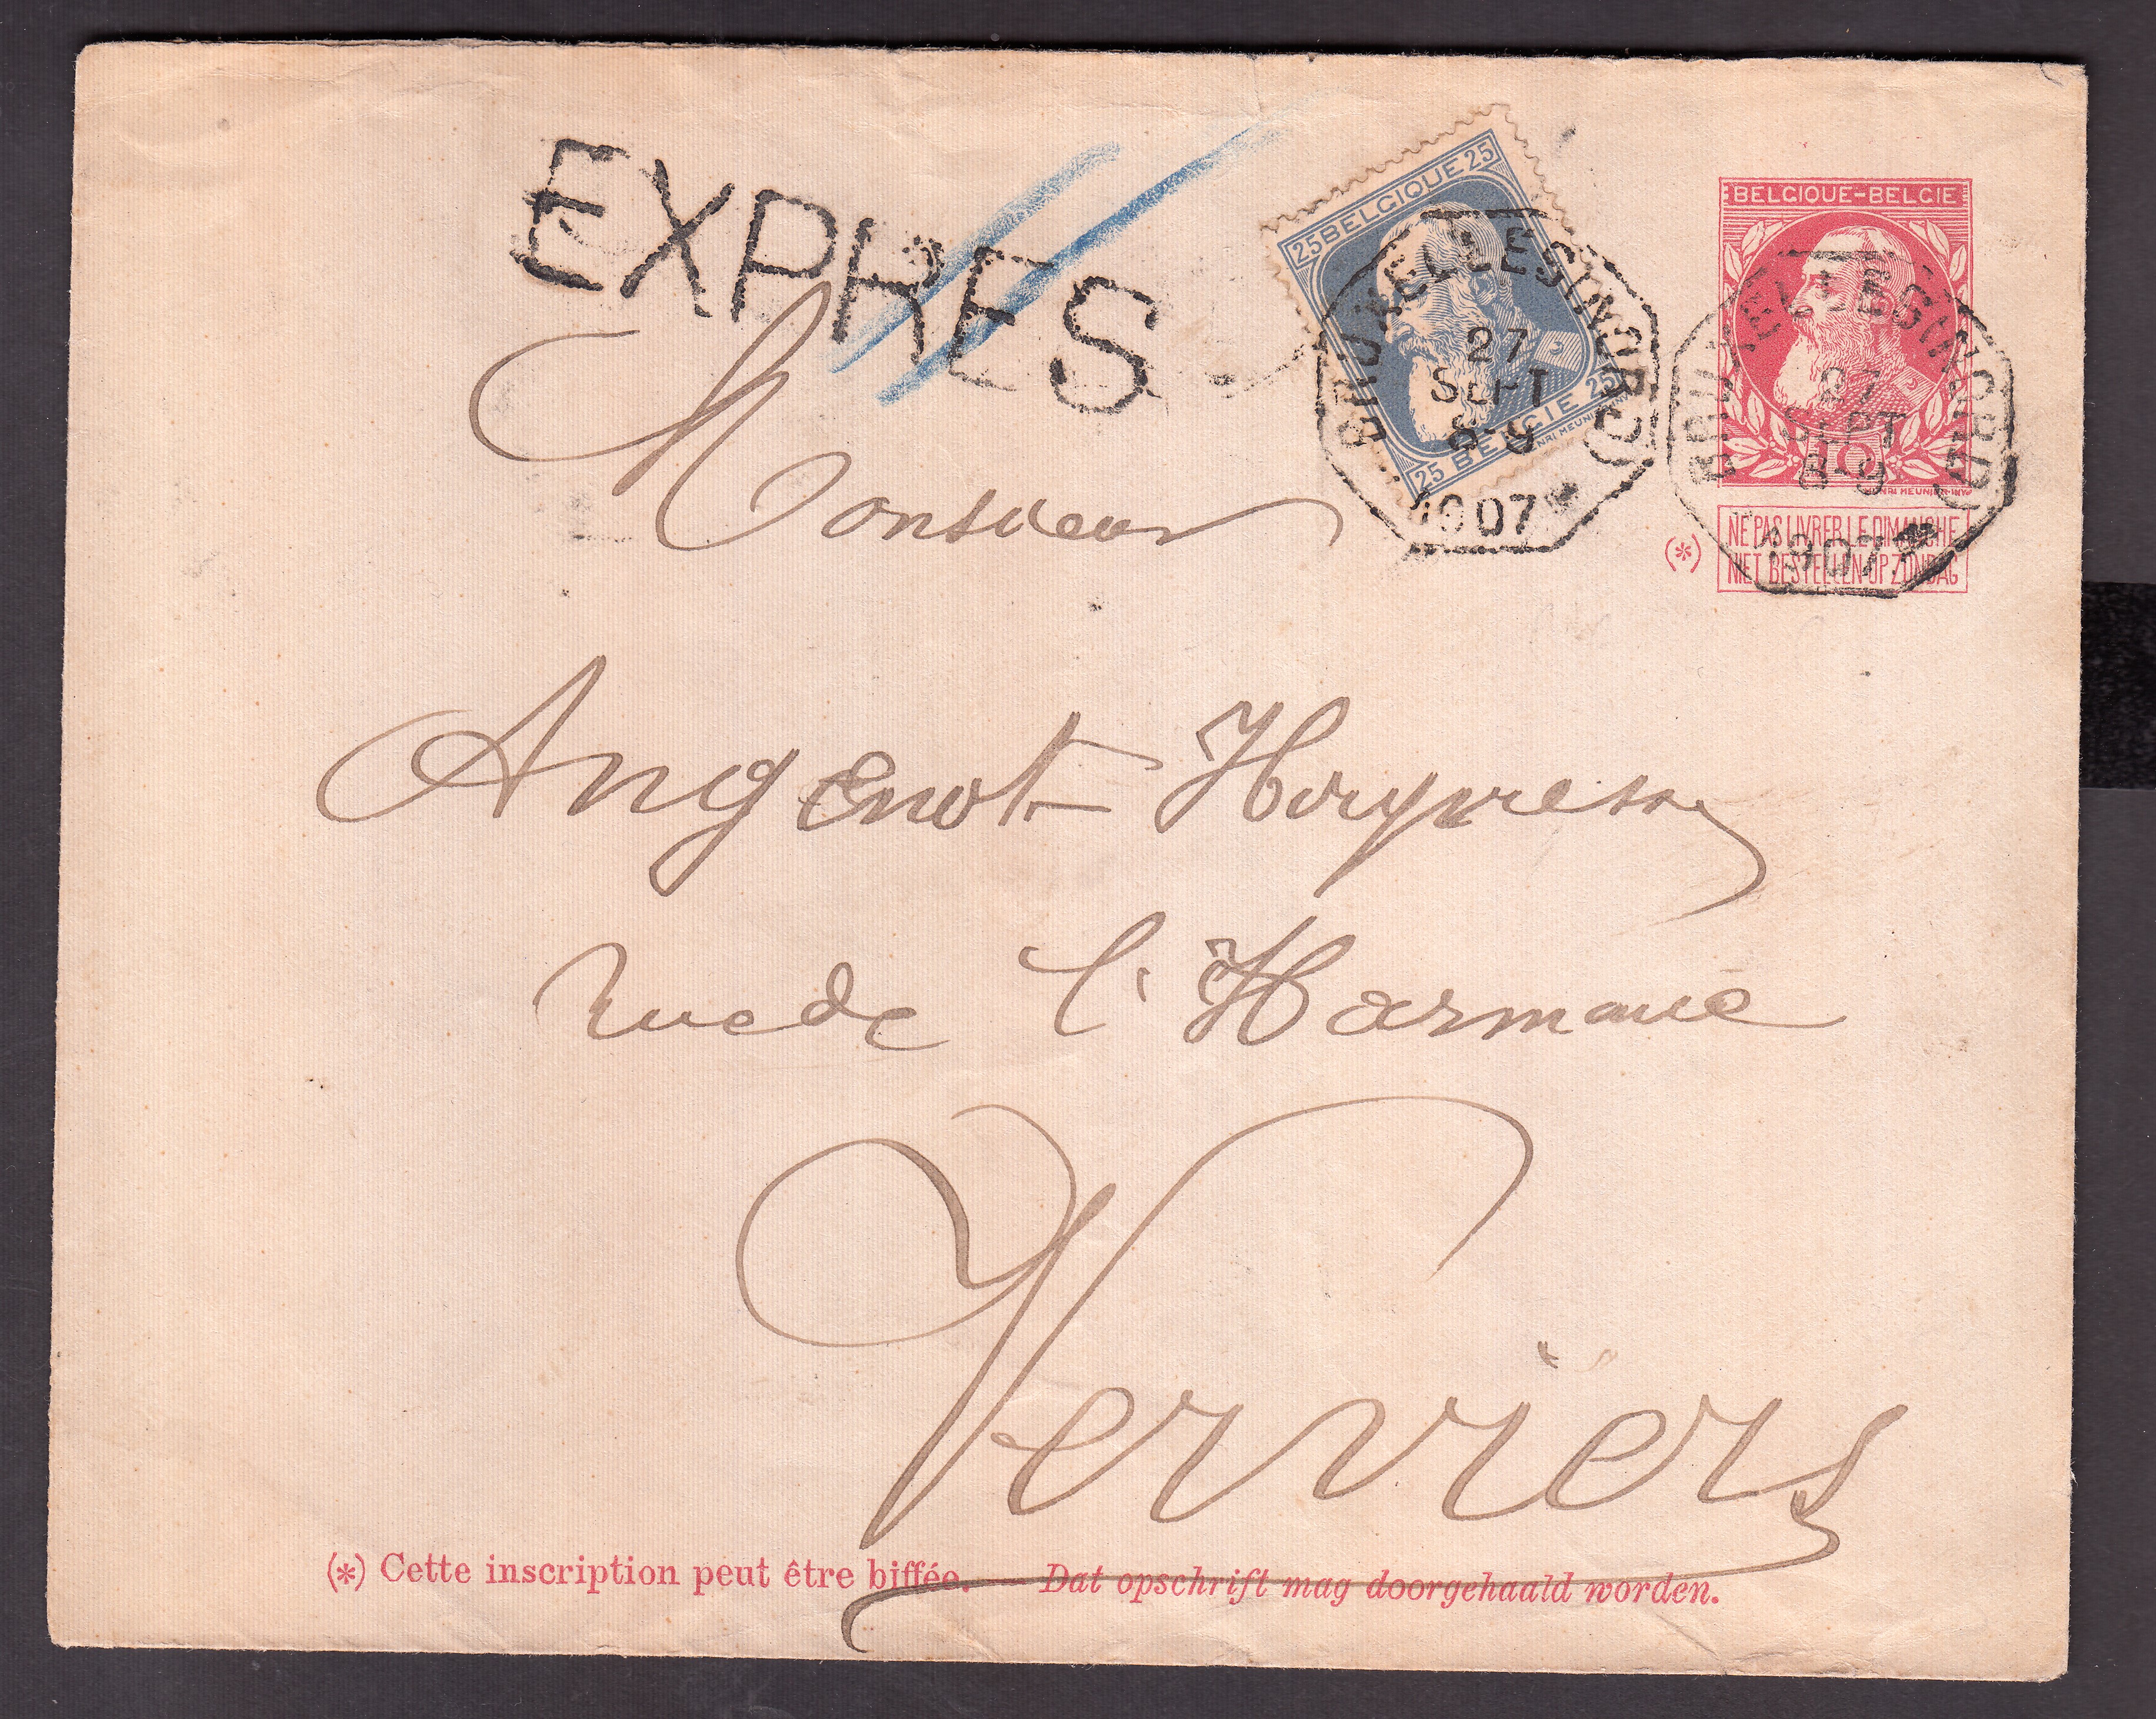 EXPRES
25 BELGIQUE 25
25 BELGIE 25
BRUXELLES (NORD)
27
SEPT
8-9
1907
BELGIQUE-BELGIE
10
BRUXELLES (NORD)
27
SEPT
8-9
1907
(*) NE PAS LIVRER LE DIMANCHE
NIET BESTELLEN OP ZONDAG
Monsieur
Angenot
rue de l'Harmonie
Verviers
(*) Cette inscription peut être biffée. — Dat opschrift mag doorgehaald worden.